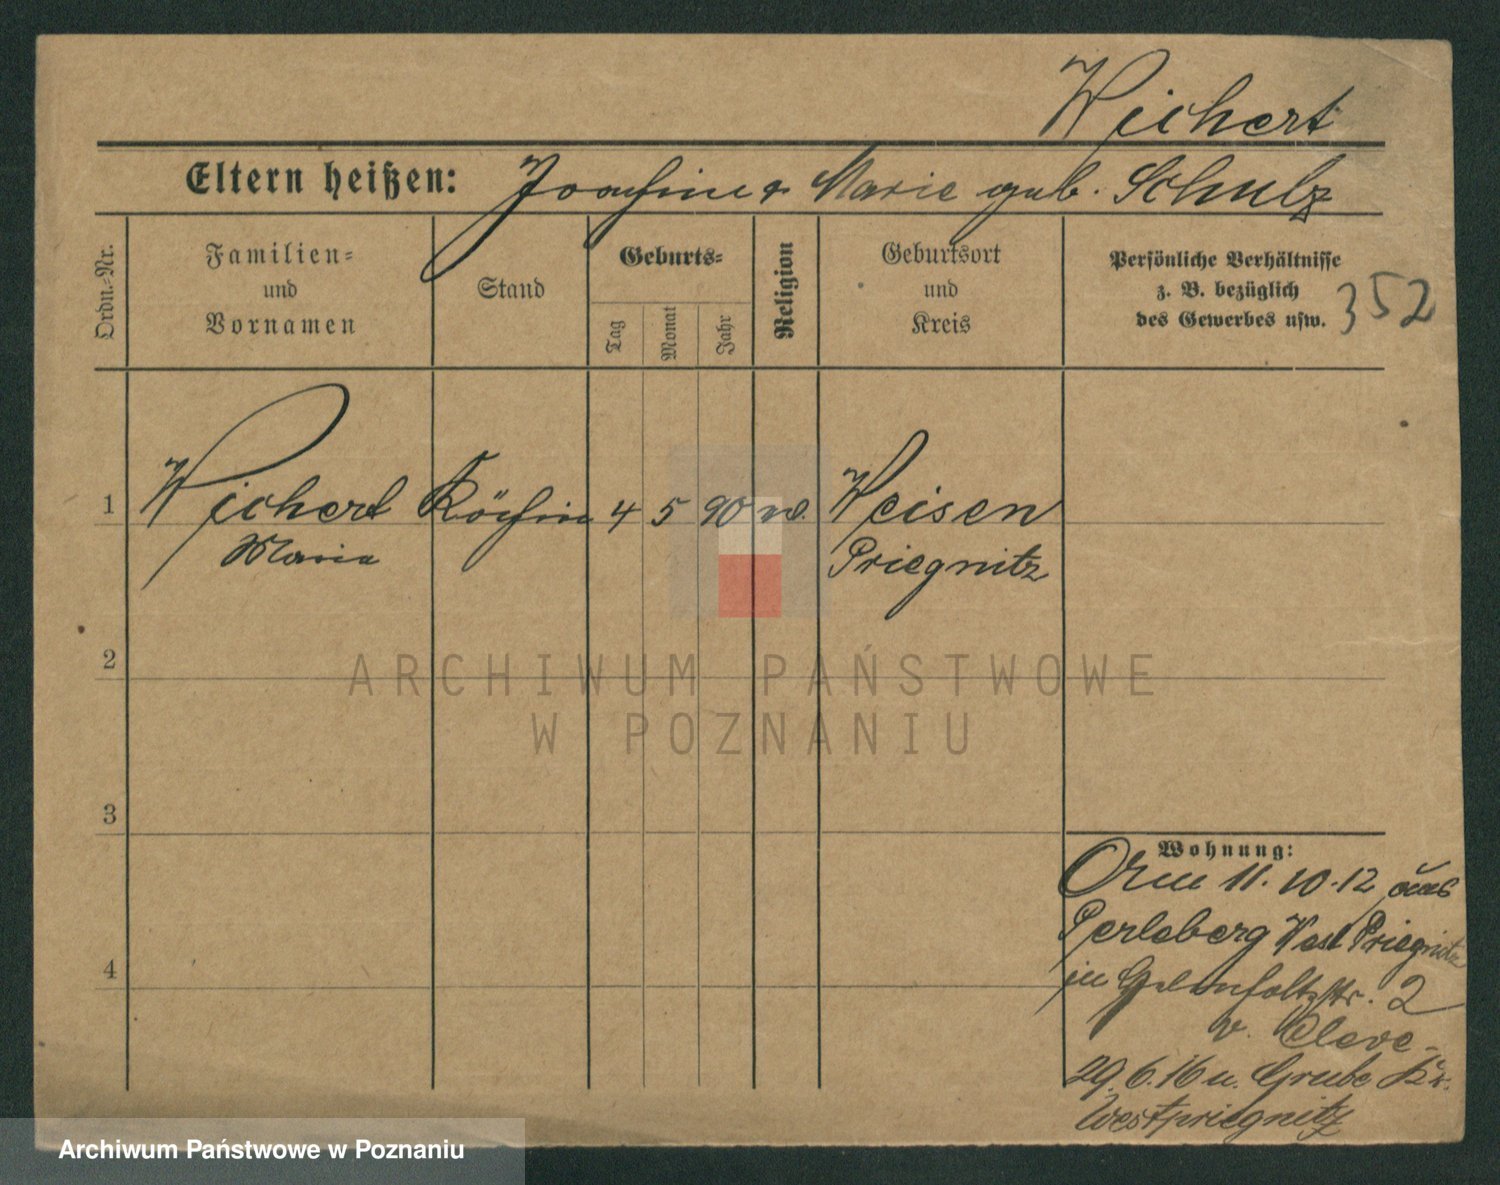 Wichert
Eltern heißen: Joachim & Marie geb. Schulz
Ordn.-Nr.
Familien-
und
Vornamen
Stand
Geburts-
Tag
Monat
Jahr
Religion
Geburtsort
und
Kreis
Persönliche Verhältnisse
z. B. bezüglich
des Gewerbes usw.
352
1 Wichert Köchin 4 5 90 ev. Weisen
Maria Priegnitz
2
3
4
Wohnung:
11.10.12 aus
Perleberg West Priegnitz
in 2
v. Cleve
29.6.16 n. Grube Kr.
Westpriegnitz
ARCHIWUM PAŃSTWOWE
W POZNANIU
Archiwum Państwowe w Poznaniu